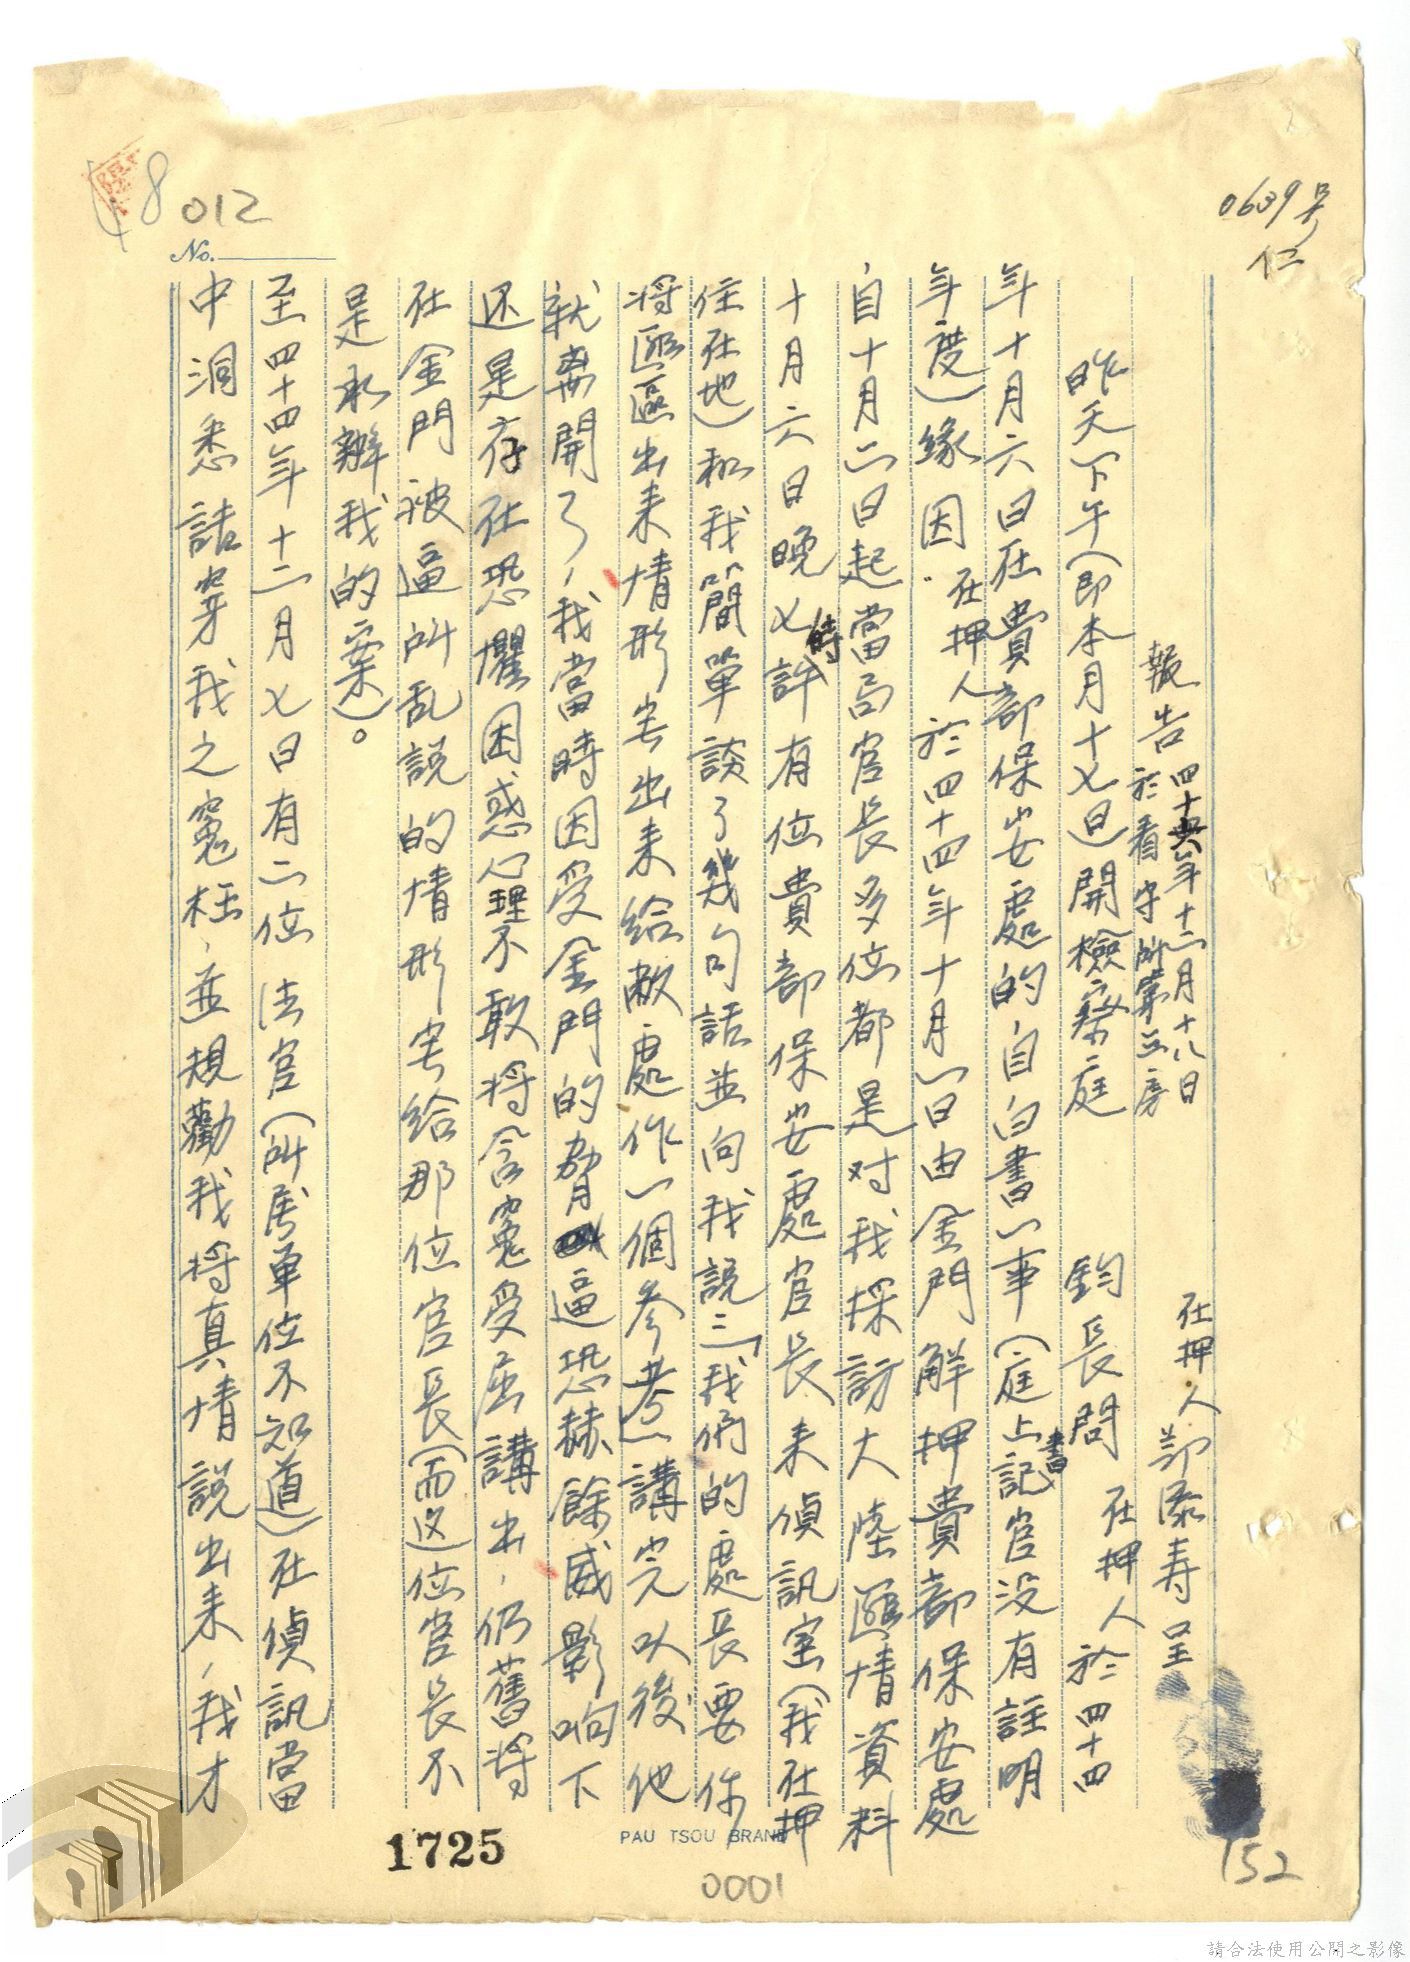 0639号
仁
48
012
No.
報告 四十六年十二月十八日
於看守所第五房
在押人 鄒添寿 呈
昨天下午(即本月十七日)開檢察庭 鈞長問 在押人 於四十四
年十月六日在貴部保安處的自白書一事(庭上書記官没有註明
年度)緣因 在押人於四十四年十月一日由金門解押貴部保安處
,自十月二日起當局官長多位都是对我採訪大陸匪情資料
十月六日晚七時許有位貴部保安處官長来偵訊室(我在押
住在地)和我簡單談了幾句話並向我說:「我們的處長要你
将匪區出来情形寫出来給敝處作一個參考」講完以後他
就离開了,我當時因受金門的脅逼恐赫餘威影响下
还是存在恐懼困惑心理不敢将含寃受屈講出,仍舊将
在金門被逼所乱說的情形寫給那位官長(而这位官長不
是承辦我的案)。
至四十四年十二月七日有二位法官(所屬单位不知道)在偵訊當
中洞悉詰穿我之寃枉,並規勸我将真情說出来,我才
1725
PAU TSOU BRAND
0001
152
請合法使用公開之影像